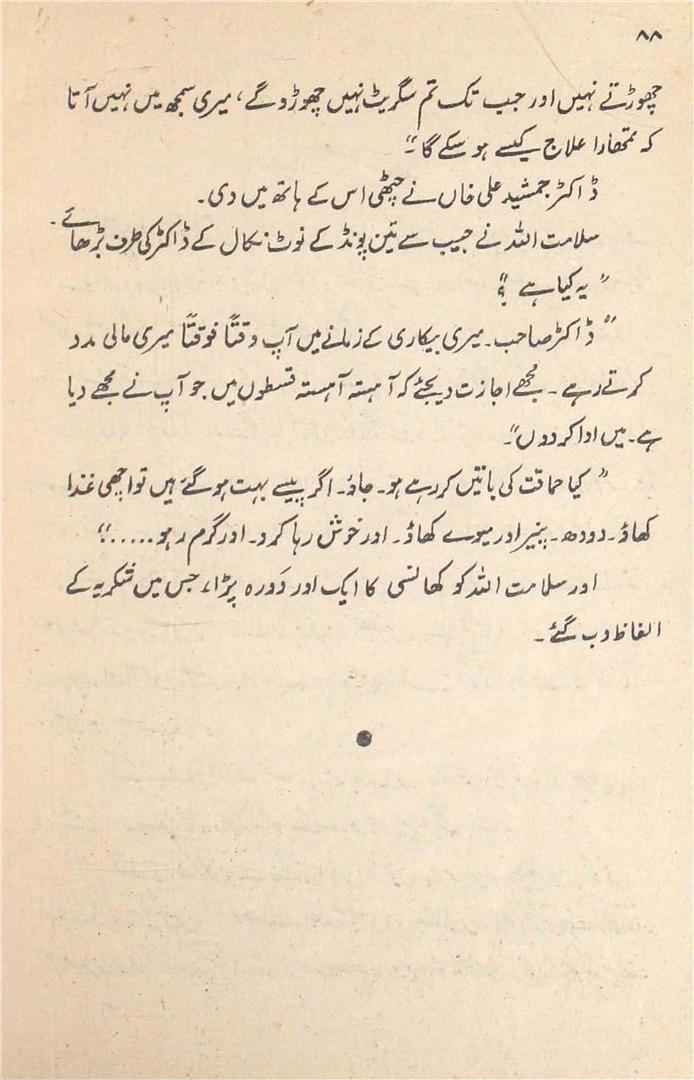 ۸۸
چھوڑتے نہیں اور جب تک تم سگریٹ نہیں چھوڑو گے، میری سمجھ میں نہیں آتا
کہ تمھارا علاج کیسے ہو سکے گا۔"
ڈاکٹر جمشید علی خاں نے چٹھی اس کے ہاتھ میں دی۔
سلامت اللہ نے جیب سے تین پونڈ کے نوٹ نکال کے ڈاکٹر کی طرف بڑھائے۔
"یہ کیا ہے؟"
"ڈاکٹر صاحب۔ میری بیکاری کے زمانے میں آپ وقتاً فوقتاً میری مالی مدد
کرتے رہے۔ مجھے اجازت دیجئے کہ آہستہ آہستہ قسطوں میں جو آپ نے مجھے دیا
ہے۔ میں ادا کر دوں"۔
"کیا حماقت کی باتیں کر رہے ہو۔ جاؤ۔ اگر پیسے بہت ہو گئے ہیں تو اچھی غذا
کھاؤ۔ دودھ۔ پنیر اور میوے کھاؤ۔ اور خوش رہا کرو۔ اور گرم رہو....."
اور سلامت اللہ کو کھانسی کا ایک اور دَورہ پڑا، جس میں شکریہ کے
الفاظ دب گئے۔